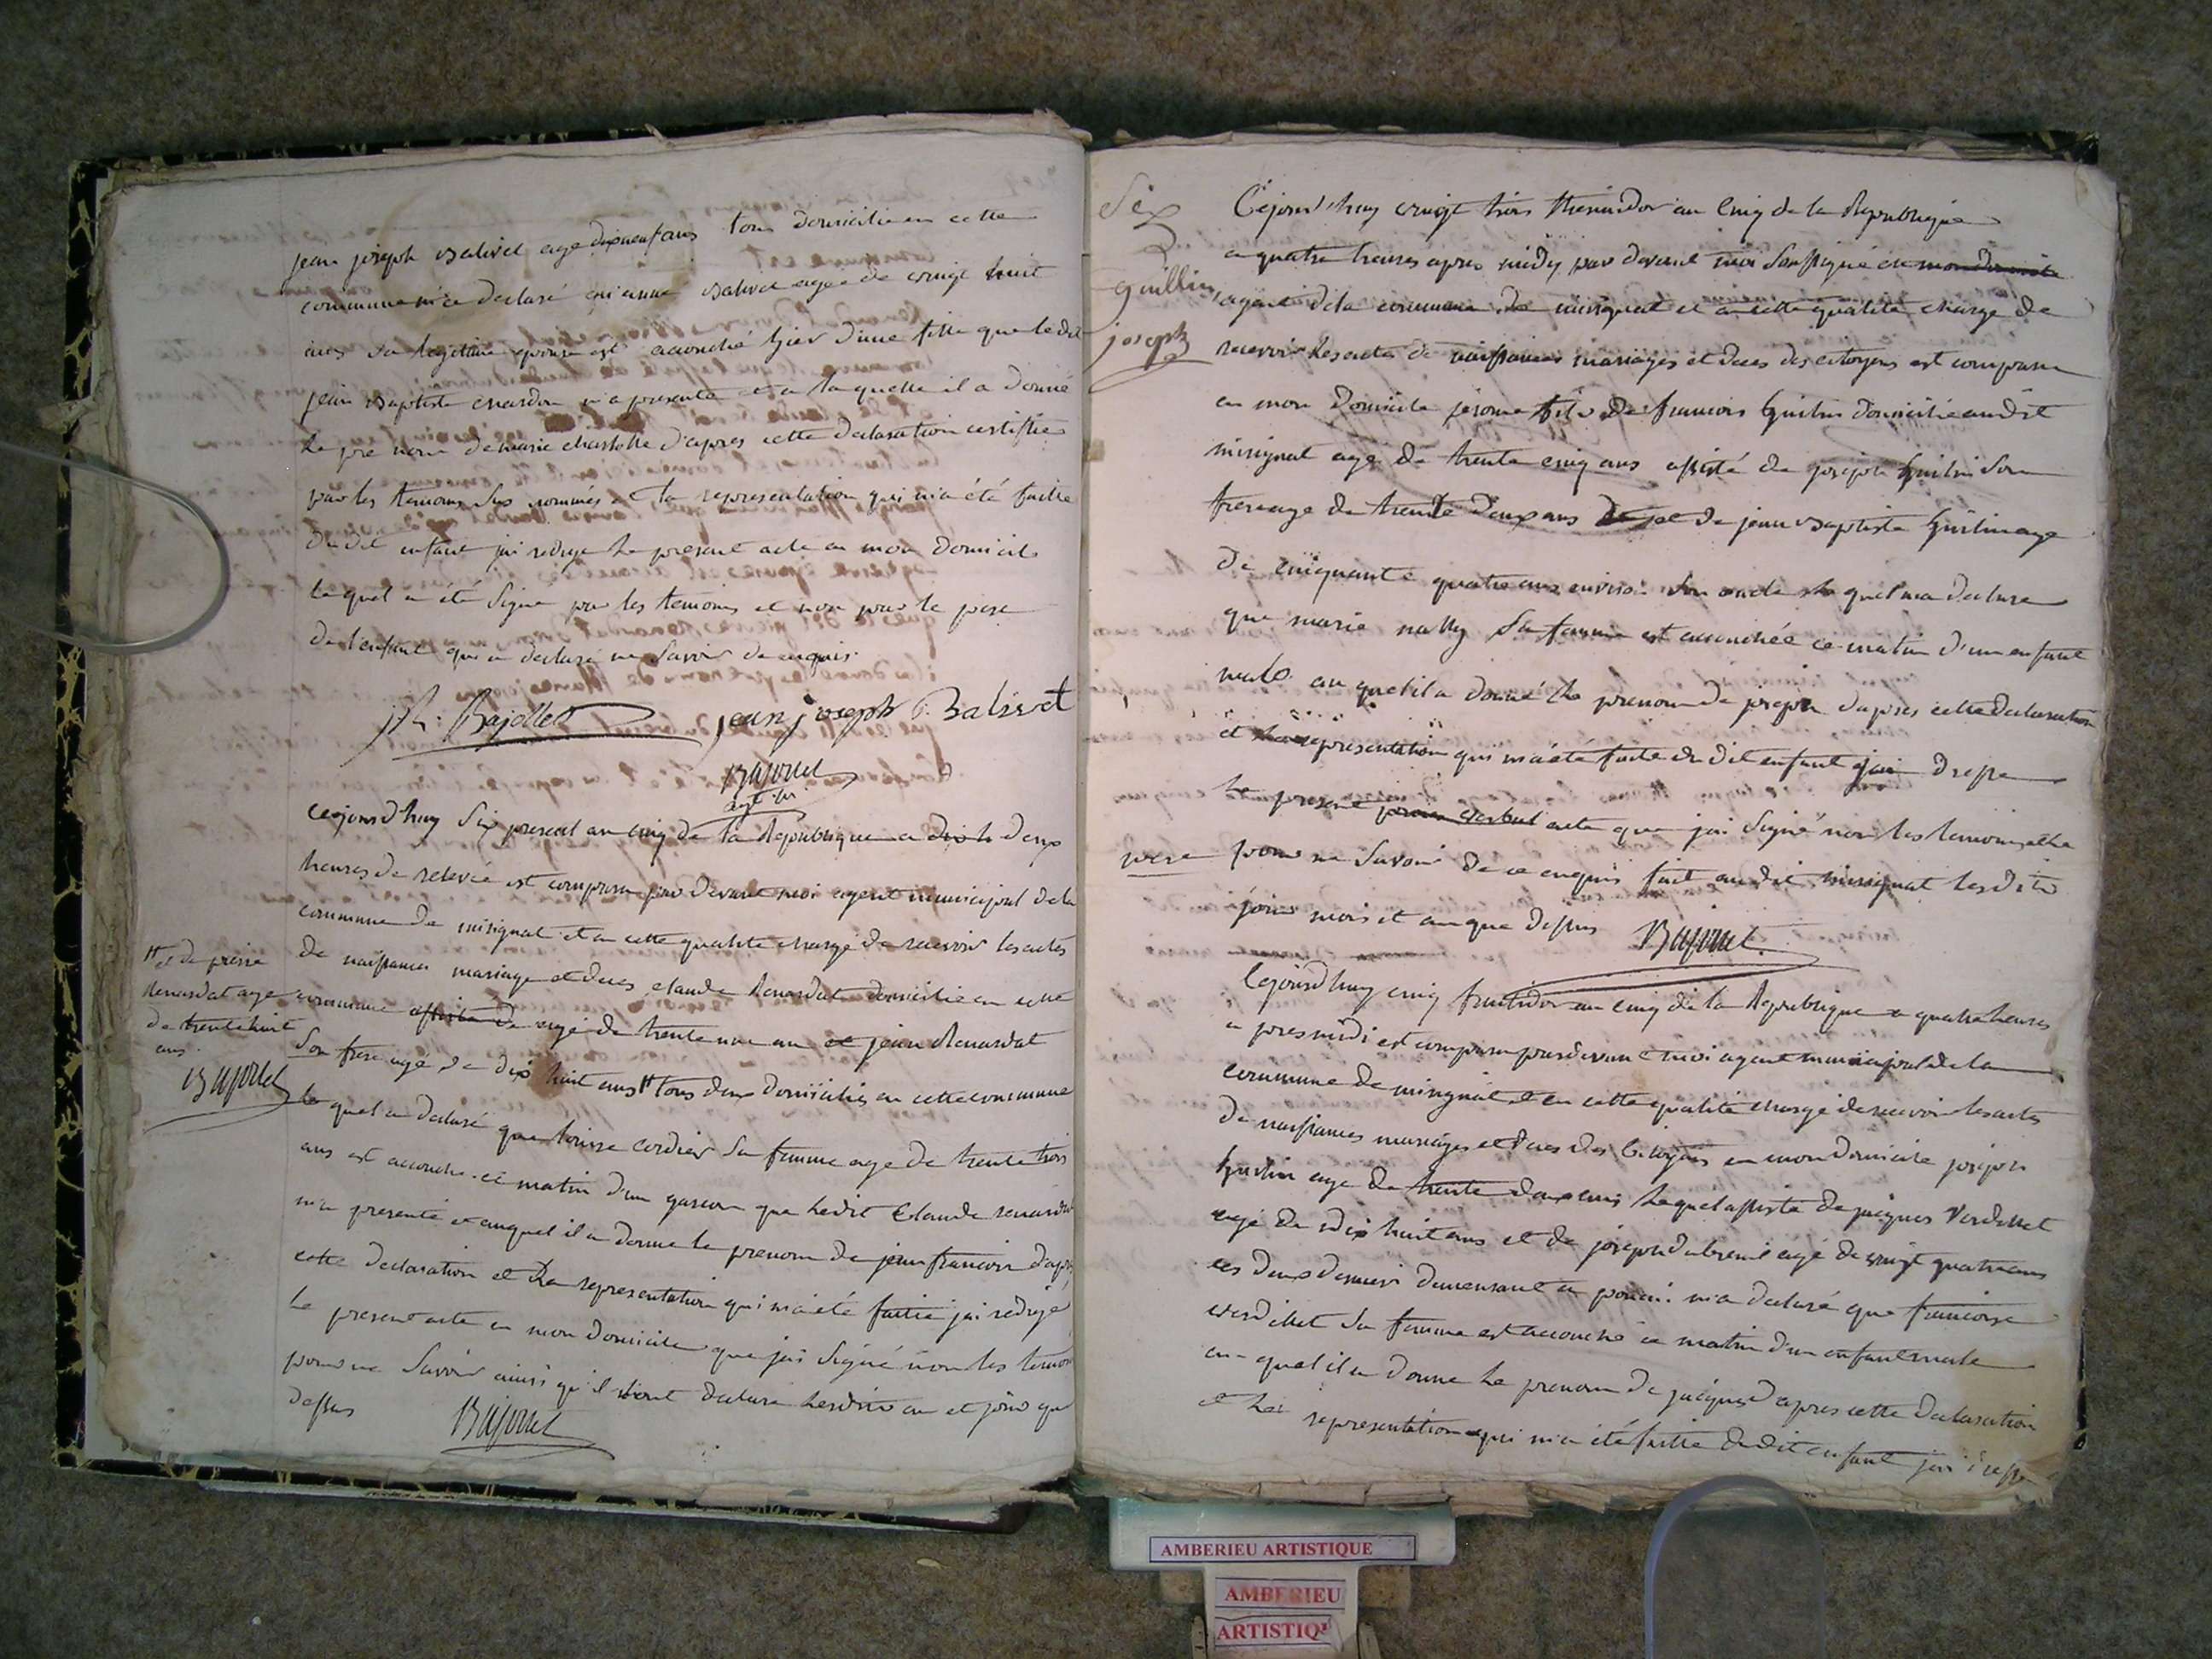 jean joseph Balivet agé dixneuf ans tous domicilié en cette
commune m'a declaré qu'anne Balivet agée de vingt huit
ans sa legitime epouse est accouché hier d'une fille que ledit
jean Baptiste m'a presenté et a laquelle il a donné
le pre nom de marie charlotte d'apres cette declaration certifiée
par les temoins sus nommés et la representation qui m'a été faitte
dudit enfant j'ai redigé le present acte en mon domicile
lequel a été signé par les temoins et non par le pere
de l'enfant qui a declaré ne savoir de ce enquis.
jean joseph Balivet
Bajollet
cejourd'huy six an cinq de la Republique a deux
heures de relevée est comparu par devant moi agent municipal dela
commune de misignat et en cette qualité chargé de recevoir les actes
de naissances mariage et deces claude Renardat domicilié en cette
commune assisté de agé de trente un an et jean Renardat
son frere agé de dix huit ans tt tous deux domiciliés en cette commune
tt et de pierre
Renardat agé
de trente huit
ans.
Bajollet
lequel a declaré que louise cordier sa femme age de trente trois
ans est accouche ce matin d'un garcon que ledit Claude renardat
m'a presenté et auquel il a donne le prenom de jean francois d'apres
cette declaration et la representation qui m'a été faitte j'ai redigé
le present acte en mon domicile que j'ai signé non les temoins
pour ne savoir ainsi qu'il declaré lesdits an et jour que
dessus
Bajollet
Six
Guillin
joseph
Cejourd'huy vingt trois thermidor an cinq de la Republique
a quatre heures apres midy par devant moi soussigné en mon domicile
agent dela commune de misignat et en cette qualité chargé de
recevoir les actes de naissances mariages et deces des citoyens est comparu
en mon domicile jerome fils de francois Guilin domicilié audit
misignat agé de trente cinq ans assisté de joseph Guilin son
frere agé de trente deux ans et de jean Baptiste Guilin agé
de cinquante quatre ans environ son oncle lequel m'a declaré
que marie sa femme est accouchée ce matin d'un enfant
male au quel il a donné le prenom de joseph d'apres cette declaration
et la representation qui m'a été faite du dit enfant j'ai dressé
le present proces verbal acte que j'ai signé non les temoins et le
pere pour ne savoir de ce enquis fait audit misignat lesdits
jour mois et an que dessus Bajollet
Cejourd'huy cinq fructidor an cinq de la Republique a quatre heures
a pres midi est comparu pardevant moi agent municipal de la
commune de misignat et en cette qualité chargé de recevoir les actes
de naissances mariages et deces des Citoyens en mon domicile joseph
Guilin agé de trente deux ans lequel assisté de jacques Verdellet
agé de dix huit ans et de joseph dubreuil agé de vingt quatre ans
ces deux derniers demeurant a m'a declaré que francoise
verdellet sa femme est accouché ce matin d'un enfant male
au-quel il a donné le prenom de jacques d'apres cette declaration
et la representation qui m'a été faitte dudit enfant j'ai dressé
AMBERIEU ARTISTIQUE
AMBERIEU
ARTISTIQ